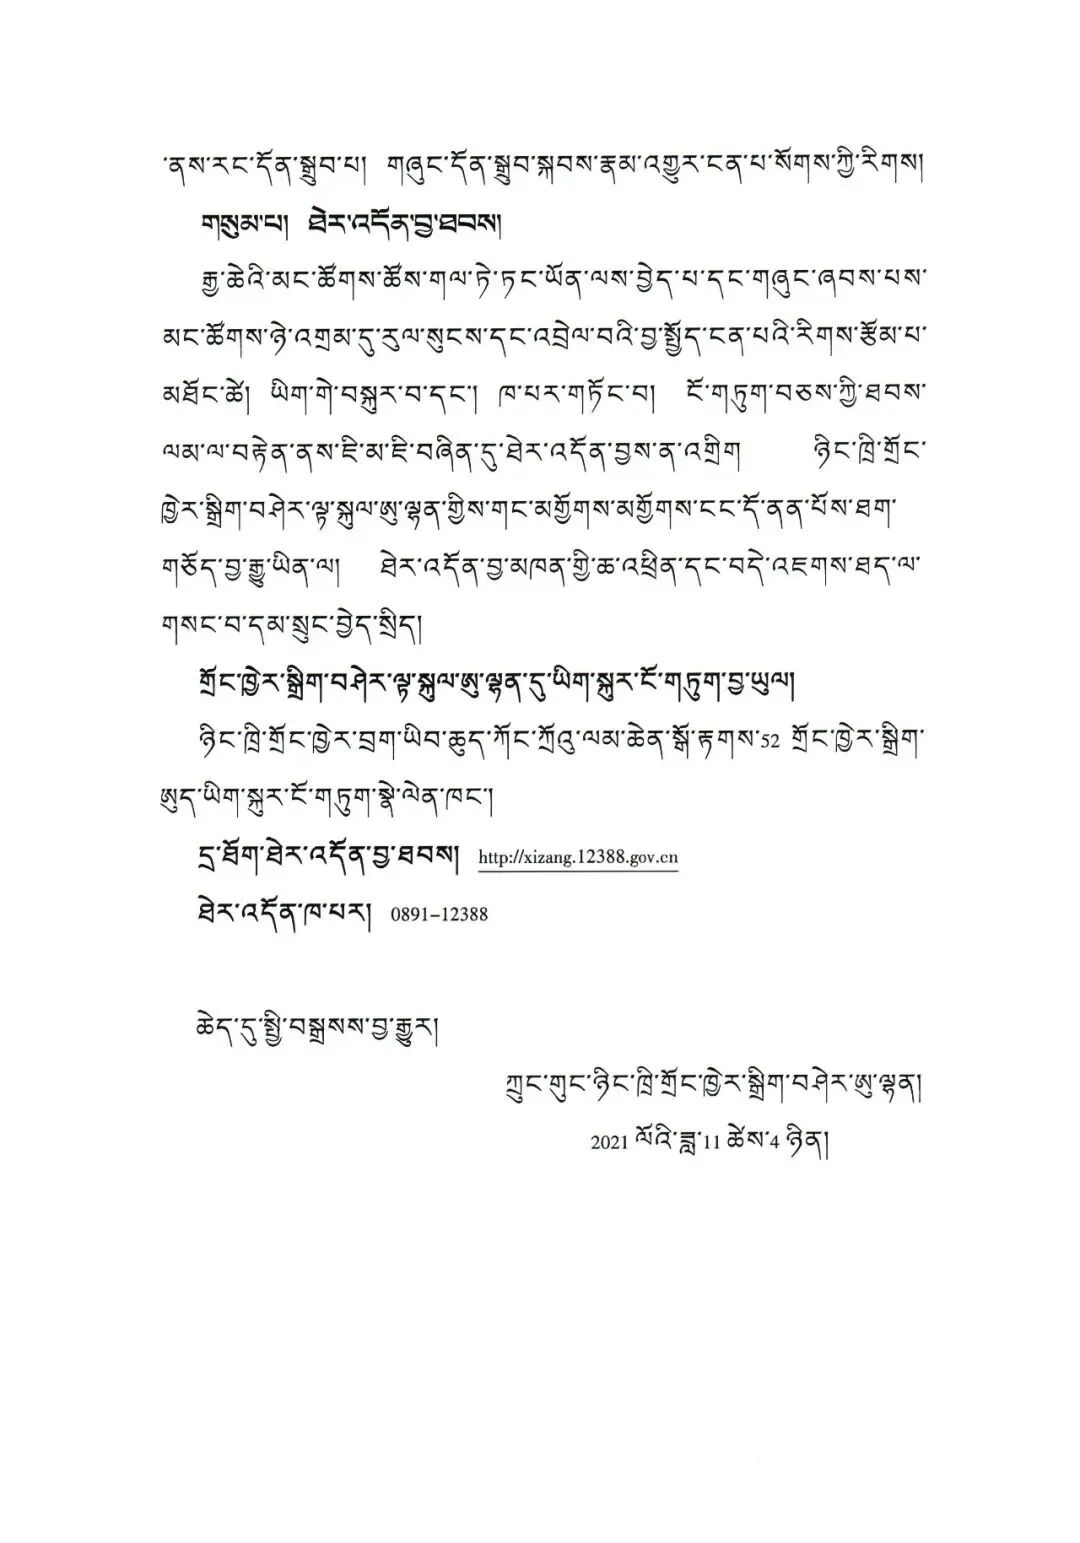 ་ནས་རང་དོན་སྒྲུབ་པ། གཞུང་དོན་སྒྲུབ་སྐབས་རྣམ་འགྱུར་ངན་པ་སོགས་ཀྱི་རིགས།
གསུམ་པ། ཐེར་འདོན་བྱ་ཐབས།
རྒྱ་ཆེའི་མང་ཚོགས་ཚོས་གལ་ཏེ་ཏང་ཡོན་ལས་བྱེད་པ་དང་གཞུང་ཞབས་པས་
མང་ཚོགས་ཉེ་འགྲམ་དུ་རུལ་སུངས་དང་འབྲེལ་བའི་བྱ་སྤྱོད་ངན་པའི་རིགས་རྩོམ་པ་
མཐོང་ཚེ། ཡིག་གེ་བསྐུར་བ་དང་། ཁ་པར་གཏོང་བ། ངོ་གཏུག་བཅས་ཀྱི་ཐབས་
ལམ་ལ་བརྟེན་ནས་ཇི་མ་ཇི་བཞིན་དུ་ཐེར་འདོན་བྱས་ན་འགྲིག ཉིང་ཁྲི་གྲོང་
ཁྱེར་སྒྲིག་བཤེར་ལྟ་སྐུལ་ཨུ་ལྷན་གྱིས་གང་མགྱོགས་མགྱོགས་ངང་དོ་ནན་པོས་ཐག་
གཅོད་བྱ་རྒྱུ་ཡིན་ལ། ཐེར་འདོན་བྱ་མཁན་གྱི་ཆ་འཕྲིན་དང་བདེ་འཇགས་ཐད་ལ་
གསང་བ་དམ་སྲུང་བྱེད་སྲིད།
གྲོང་ཁྱེར་སྒྲིག་བཤེར་ལྟ་སྐུལ་ཨུ་ལྷན་དུ་ཡིག་སྐུར་ངོ་གཏུག་བྱ་ཡུལ།
ཉིང་ཁྲི་གྲོང་ཁྱེར་བྲག་ཡིབ་ཆུད་ཀོང་ཀྲོའུ་ལམ་ཆེན་སྒོ་རྟགས་52 གྲོང་ཁྱེར་སྒྲིག་
ཨུད་ཡིག་སྐུར་ངོ་གཏུག་སྣེ་ལེན་ཁང་།
དྲ་ཐོག་ཐེར་འདོན་བྱ་ཐབས། http://xizang.12388.gov.cn
ཐེར་འདོན་ཁ་པར། 0891-12388
ཆེད་དུ་སྤྱི་བསྒྲསས་བྱ་རྒྱུར།
ཀྲུང་གུང་ཉིང་ཁྲི་གྲོང་ཁྱེར་སྒྲིག་བཤེར་ཨུ་ལྷན།
2021 ལོའི་ཟླ་11 ཚེས་4 ཉིན།